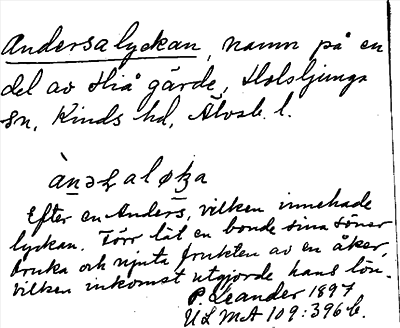 Andersalyckan, namn på en
del av Hiå gärde, Holsljunga
sn, Kinds hd, Älvsb. l.
Efter en Anders, vilken innehade
lyckan. Förr lät en bonde sina söner
bruka och njuta frukten av en åker,
vilken inkomst utgjorde hans lön.
P. Leander 1897
ULMA 109:396 b.